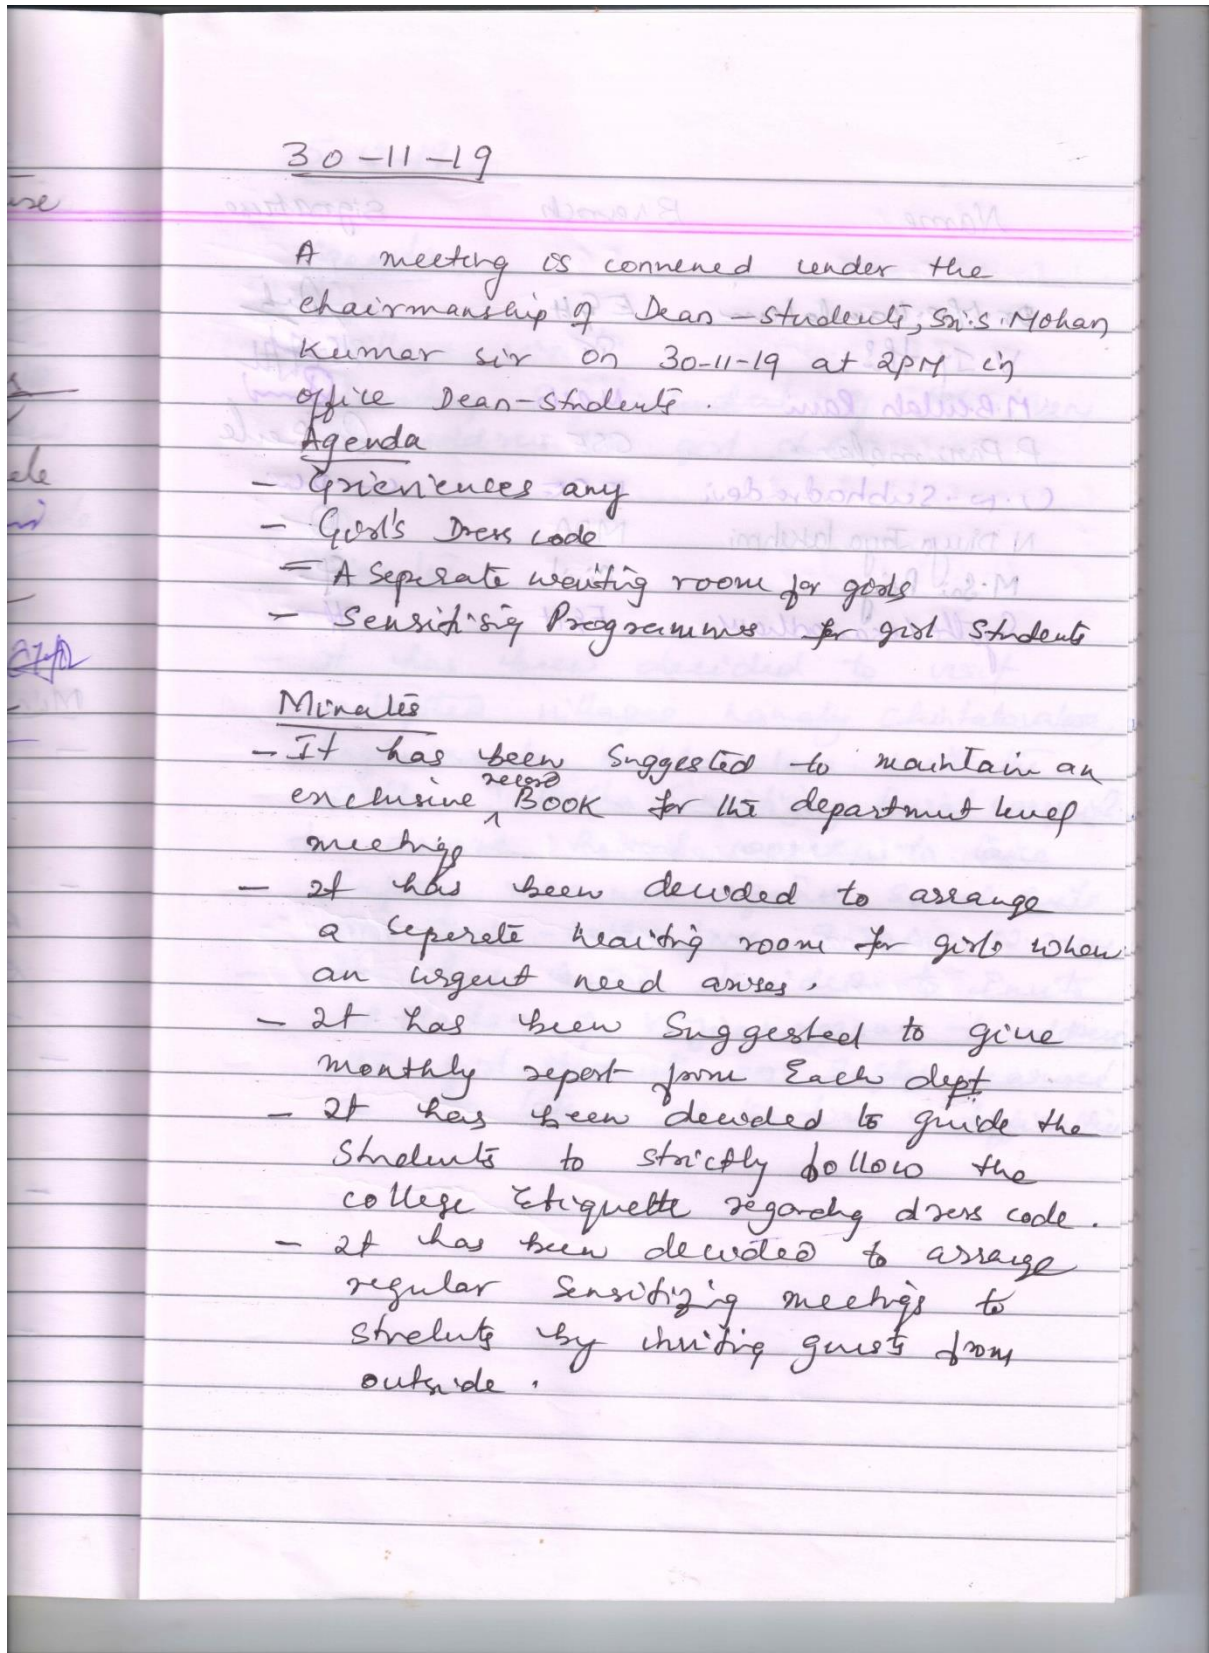 30-11-19
A meeting is connened under the
chairmanship of Dean - students, Sri. S. Mohan
Kumar sir on 30-11-19 at 2PM in
office Dean-Students.
Agenda
- Grieviences any
- Girl's Dress code
- A Seperate waiting room for girls
- Sensitising Programmes for girl Students
Minutes
- It has been Suggested to maintain an
exclusive record BOOK for the department level
meetings
- It has been decided to arrange
a seperate waiting room for girls when
an urgent need arises.
- It has been Suggested to give
monthly report from Each dept
- It has been decided to guide the
Students to strictly follow the
college Etiquette regarding dress code.
- It has been decided to arrange
regular Sensitizing meetings to
students by inviting guests from
outside.